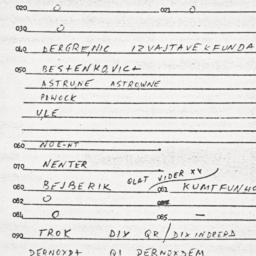 020 O 021 O
030 O
040 DERGRENIC IZVAJTAVEKFUNDA
050 BESTENKOVICH
ASTRUNE ASTROWNE
POWOCK
VLE
060 NOE-NT
070 NENTER
080 BEJBERIK GLAT VIDER XX 061 KUMTFUNHO
082 O
084 O 085 —
090 TROK DIX QR/DIXINDRERD
DERNOYDT QI DERNOXDEM